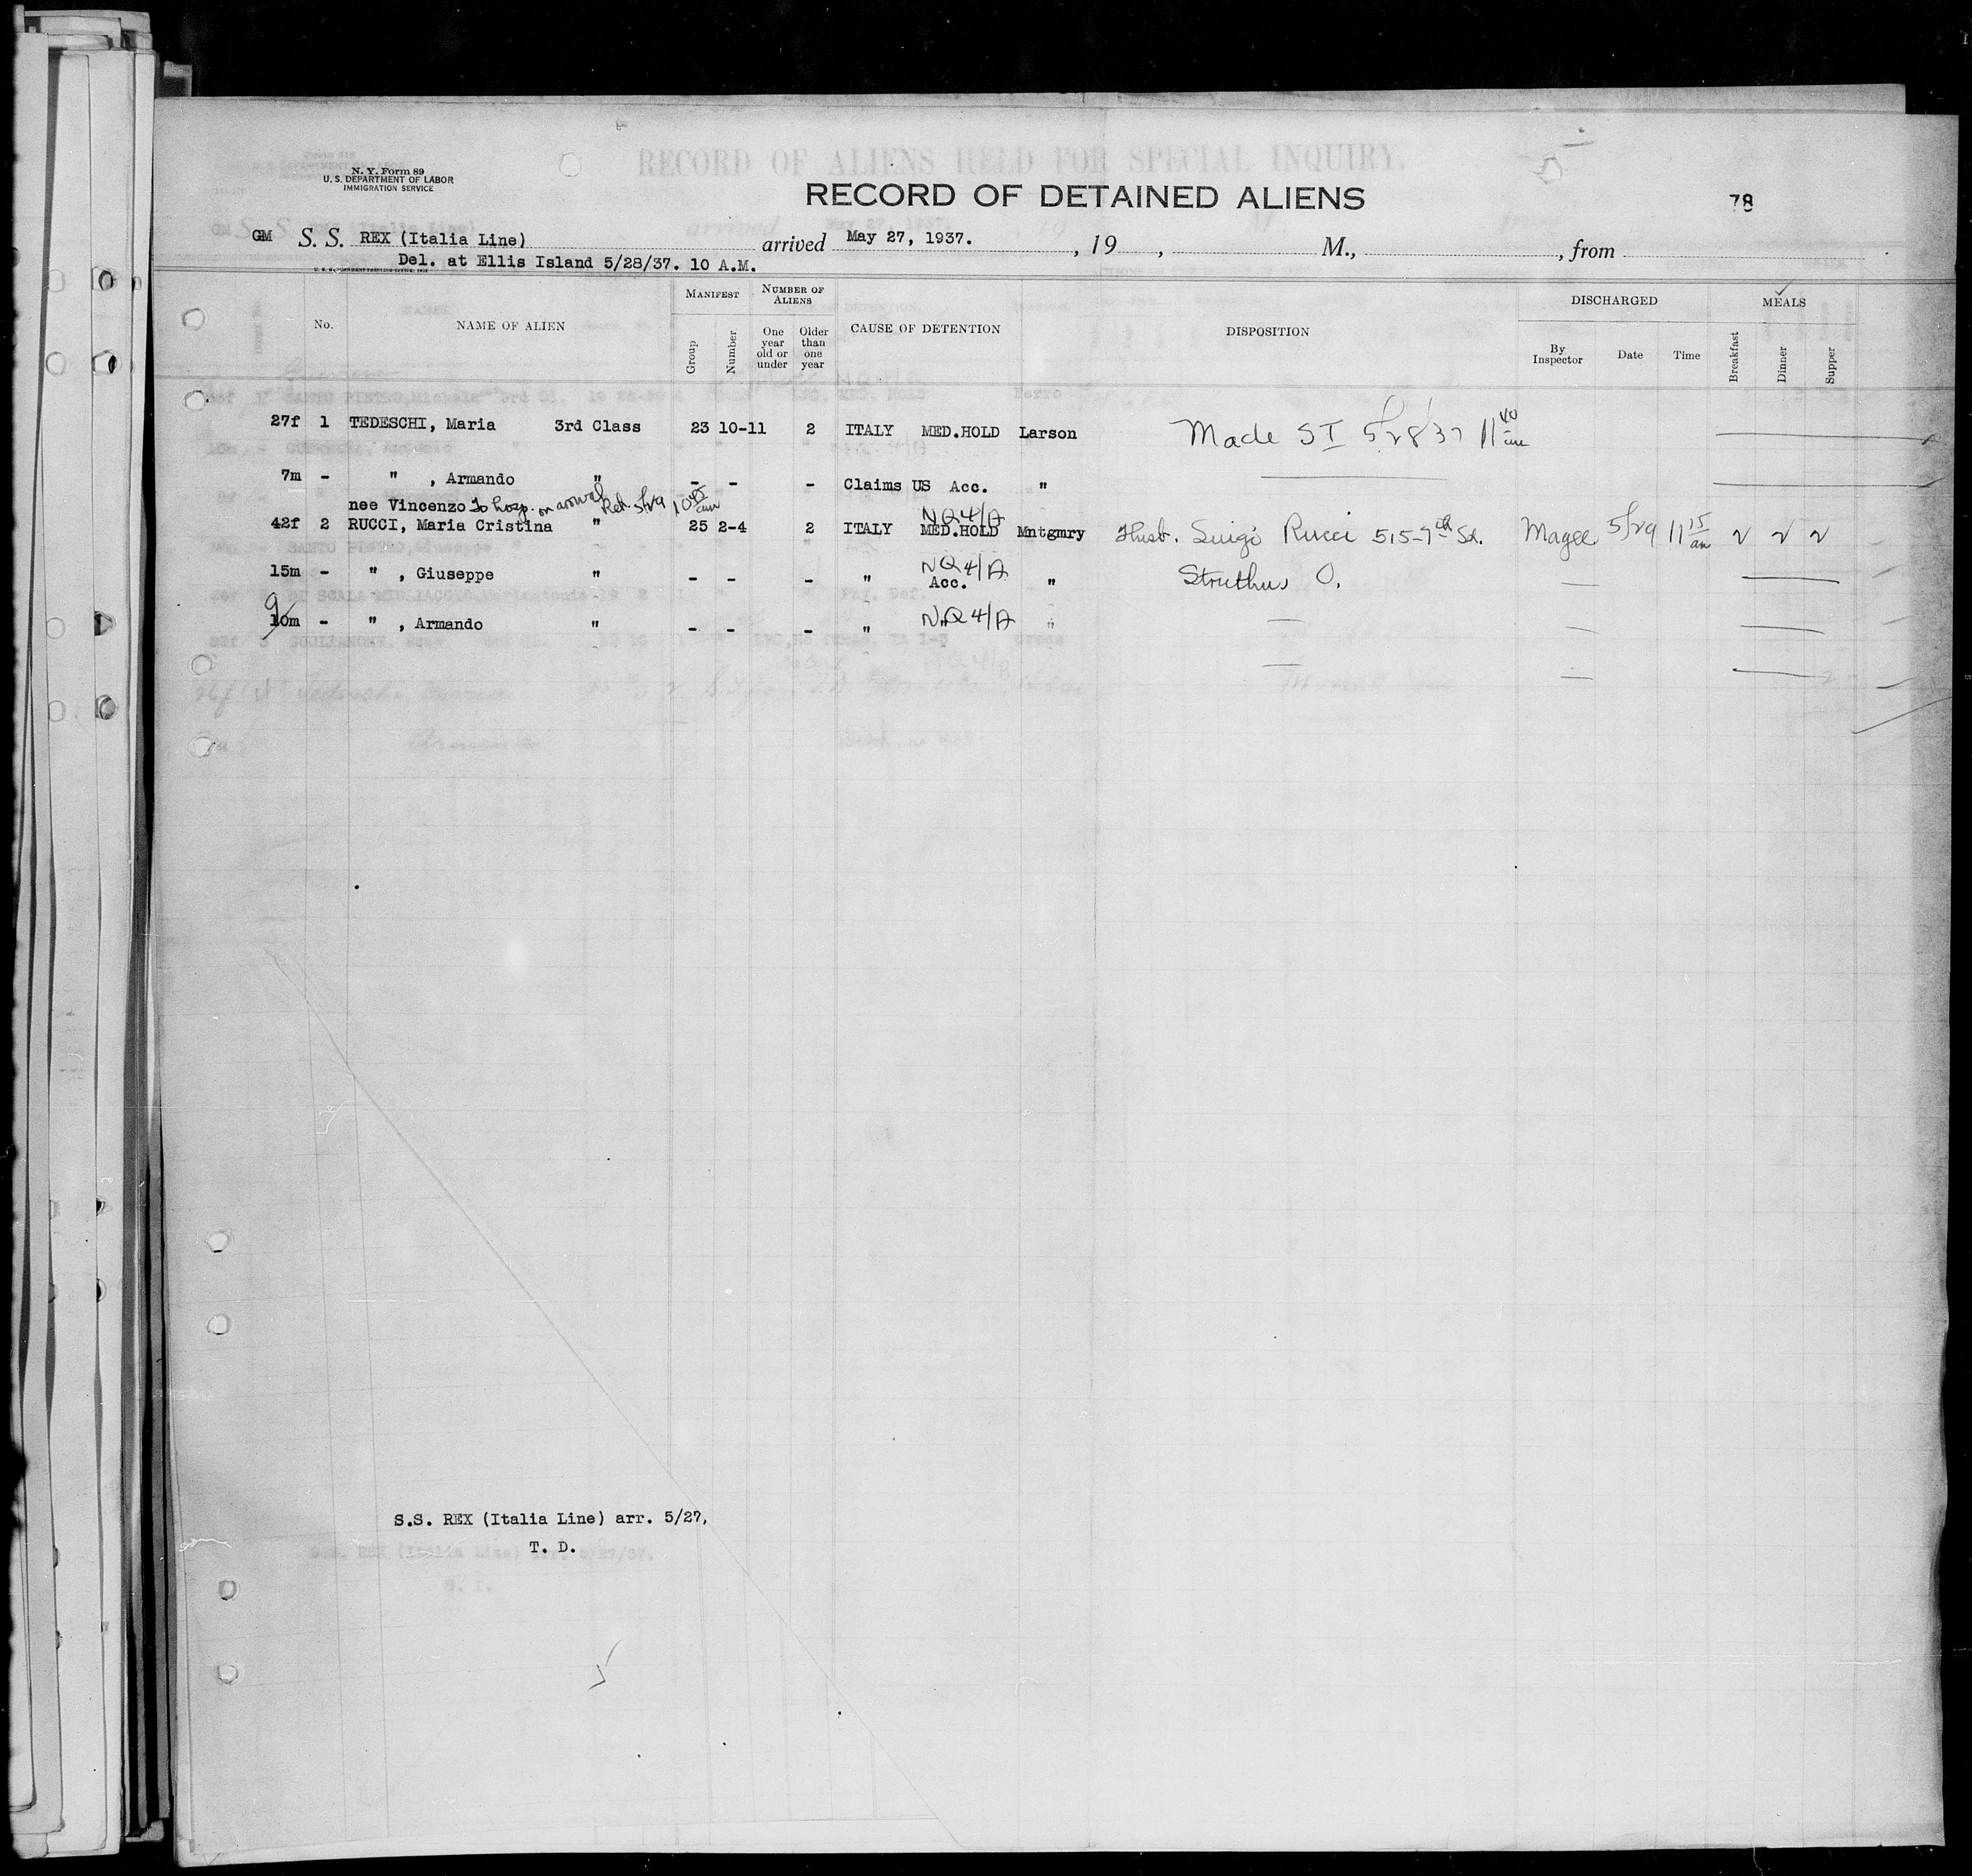 RECORD OF ALIENS HELD FOR SPECIAL INQUIRY.
N. Y. Form 89
U. S. DEPARTMENT OF LABOR
IMMIGRATION SERVICE
RECORD OF DETAINED ALIENS
78
GM S. S. REX (Italia Line) arrived May 27, 1937. , 19 , M., , from
Del. at Ellis Island 5/28/37. 10 A.M.
No. NAME OF ALIEN MANIFEST Group Number NUMBER OF ALIENS One year old or under Older than one year CAUSE OF DETENTION DISPOSITION DISCHARGED By Inspector Date Time MEALS Breakfast Dinner Supper
27f 1 TEDESCHI, Maria 3rd Class 23 10-11 2 ITALY MED.HOLD Larson Made SI 5/28/37 11 40 am
7m - " , Armando " - - - Claims US Acc. "
nee Vincenzo To hosp. on arrival Ret. 5/29 10 45 am
NQ 4/A
42f 2 RUCCI, Maria Cristina " 25 2-4 2 ITALY MED.HOLD Mntgmry Husb. Luigi Rucci 515-7th St. Magee 5/29 11 15 am √ √ √
NQ 4/A
15m - " , Giuseppe " - - - " Acc. " Struthus O.
9
10m - " , Armando " - - - " NQ 4/A "
S.S. REX (Italia Line) arr. 5/27,
T. D.
S.S. REX (Italia Line) arr. 5/27/37.
S. I.